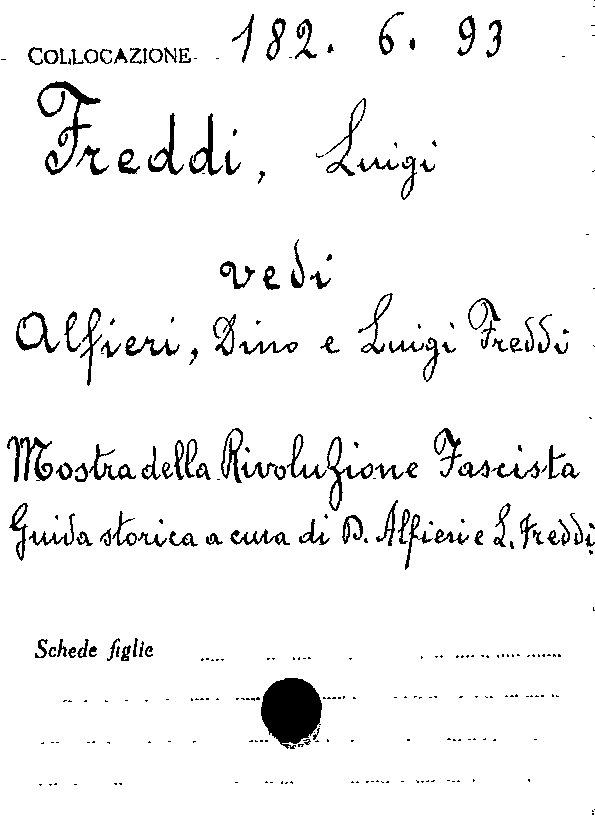 COLLOCAZIONE 182. 6. 93
Freddi, Luigi
vedi
Alfieri, Dino e Luigi Freddi
Mostra della Rivoluzione Fascista
Guida storica a cura di D. Alfieri e L. Freddi
Schede figlie